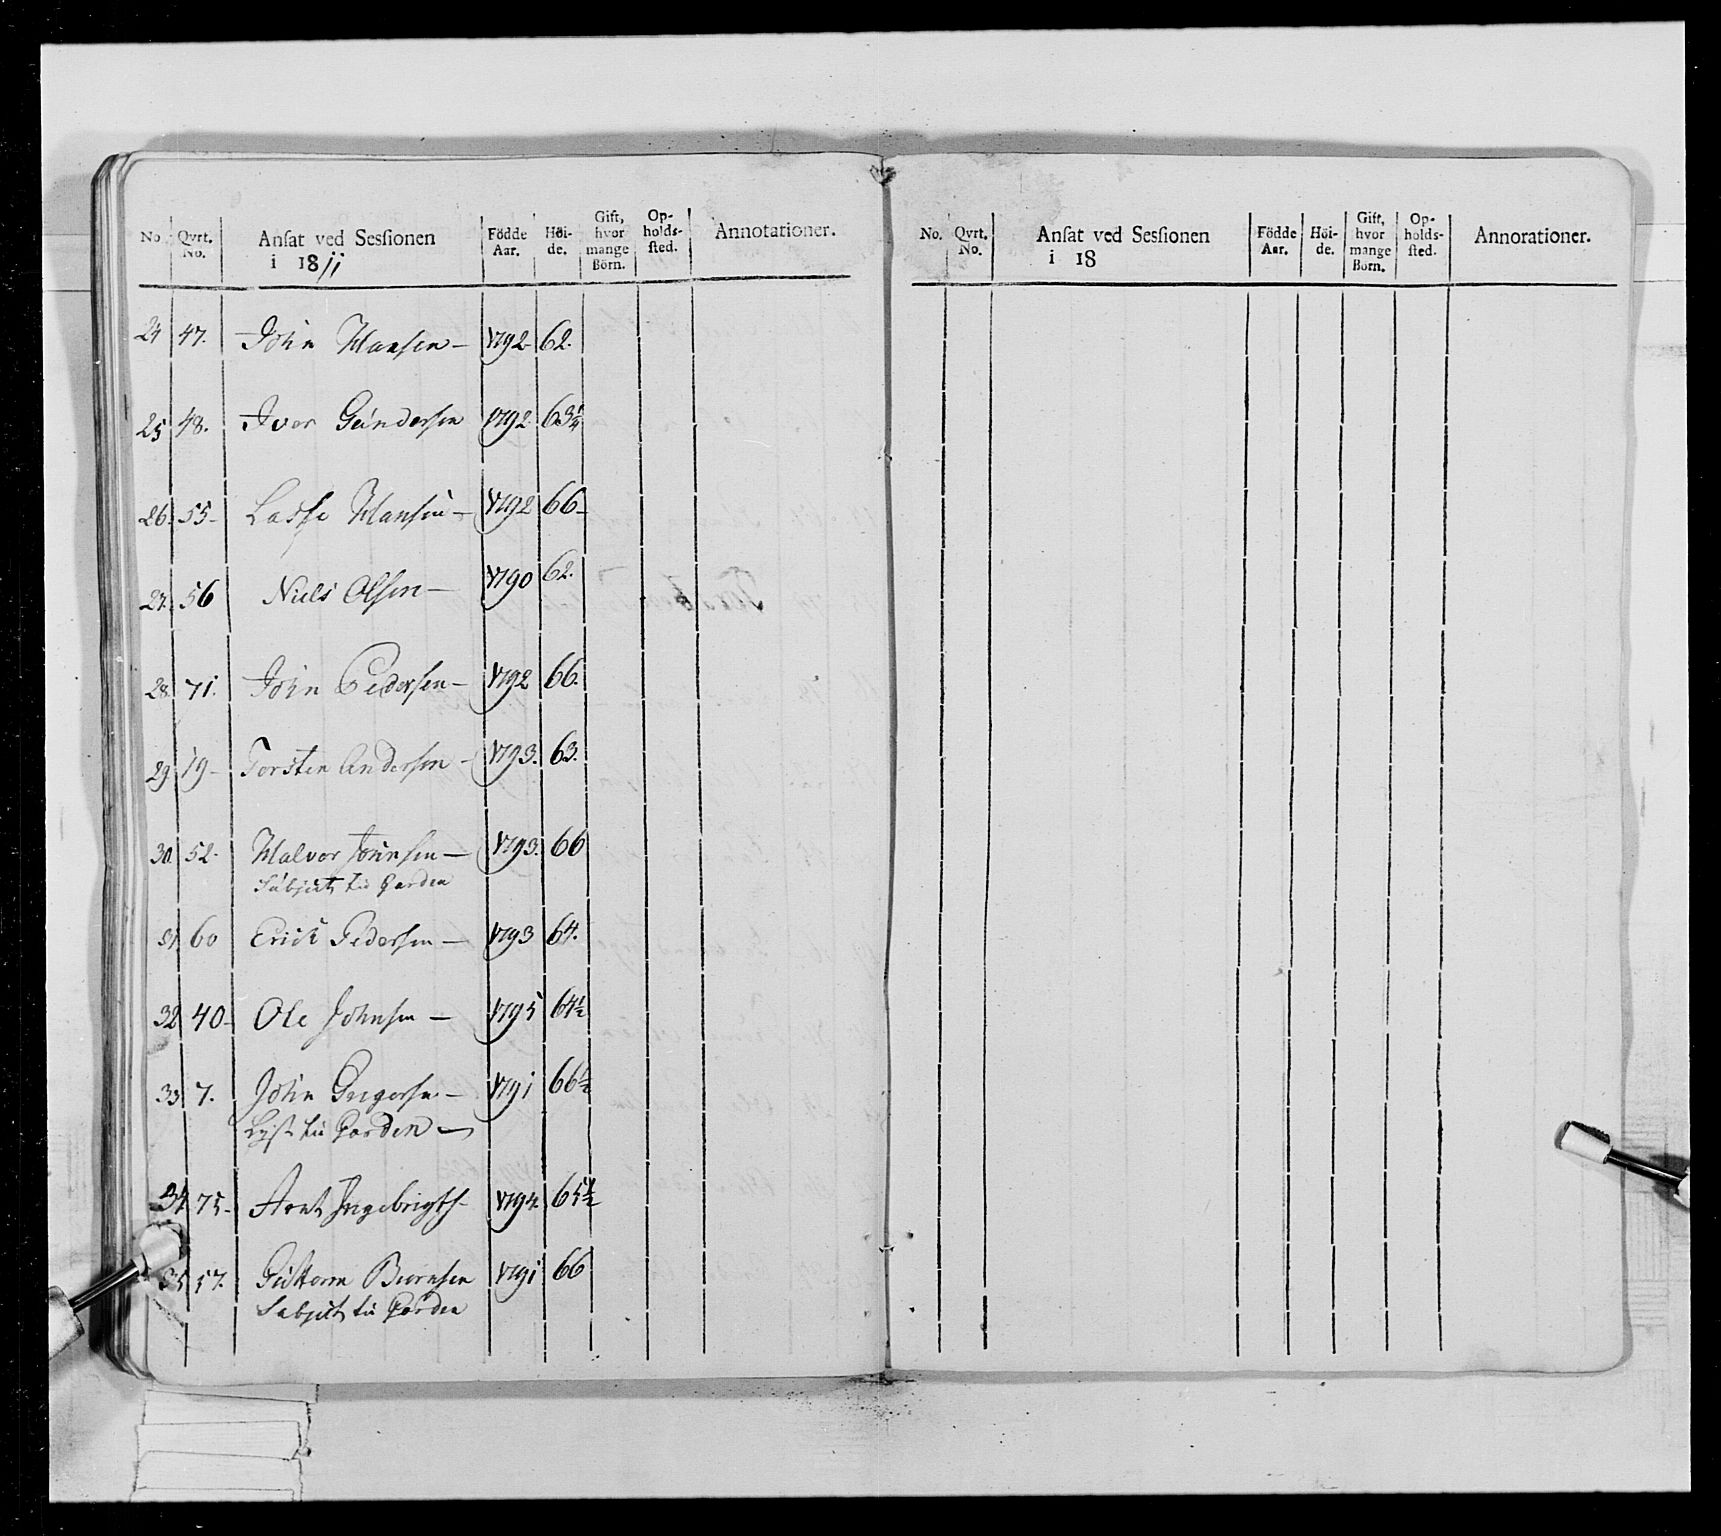 No. Qvrt. No. Ansat ved Sessionen i 1811 Födde Aar. Höi-de. Gift, hvor mange Börn. Op-holds-sted. Annotationer.
24 47. John Hansen – 1792. 62.
25 48. Iver Gundersen 1792 63¼
26. 55– Lasse Hansen – 1792 66–
27. 56 Niels Olsen – 1790 62.
28. 71. John Pedersen – 1792 66.
29 19– Torsten Andersen – 1793. 63.
30. 52. Halvor Johnsen – 1793. 66
Subject til Garden
31. 60 Erick Pedersen – 1793 64.
32 40– Ole Johnsen – 1795 64½
33 7. John Gregersen – 1791 66½
Lyst til Garden –
34. 75– Arnt Ingebrigts– 1794. 65½
35 57. Guttorm Biørnsen 1791 66
Subject til Garden
No. Qvrt. No. Ansat ved Sessionen i 18 Födde Aar. Höi-de. Gift, hvor mange Börn. Op-holds-sted. Annorationer.